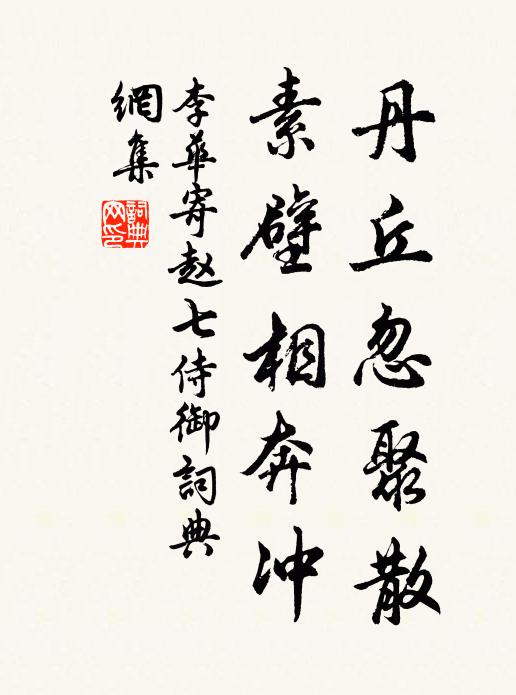 丹丘忽聚散
素壁相奔冲
李華寄赵七侍御詞典
網集
詞典
网印